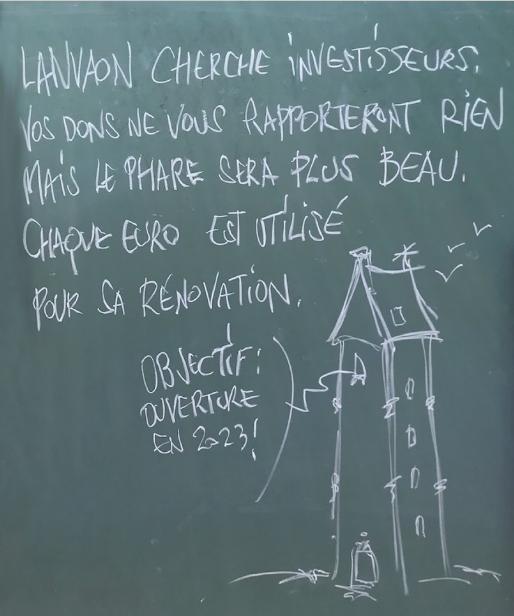 LANVAON CHERCHE INVESTISSEURS.
VOS DONS NE VOUS RAPPORTERONT RIEN
MAIS LE PHARE SERA PLUS BEAU.
CHAQUE EURO EST UTILISÉ
POUR SA RÉNOVATION.
OBJECTIF:
OUVERTURE
EN 2023!